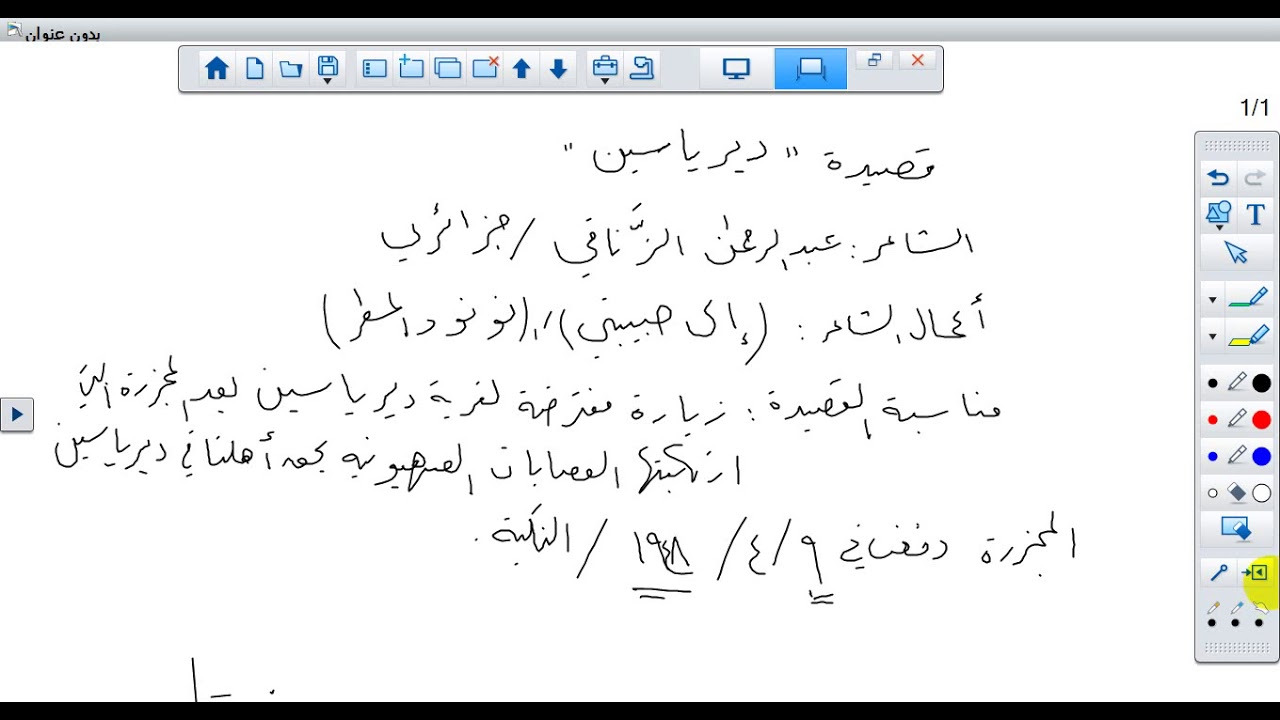 بدون عنوان
1/1
قصيدة " دير ياسين "
الشاعر : عبد الرحمن الزّناقي / جزائري
أعمال الشاعر : (إلى حبيبتي) / (نونو والمطر)
مناسبة القصيدة : زيارة مفترضة لقرية دير ياسين بعد المجزرة التي
ارتكبتها العصابات الصهيونية بحق أهلنا في دير ياسين
المجزرة وقعت في ٩ / ٤ / ١٩٤٨ / النكبة .
T